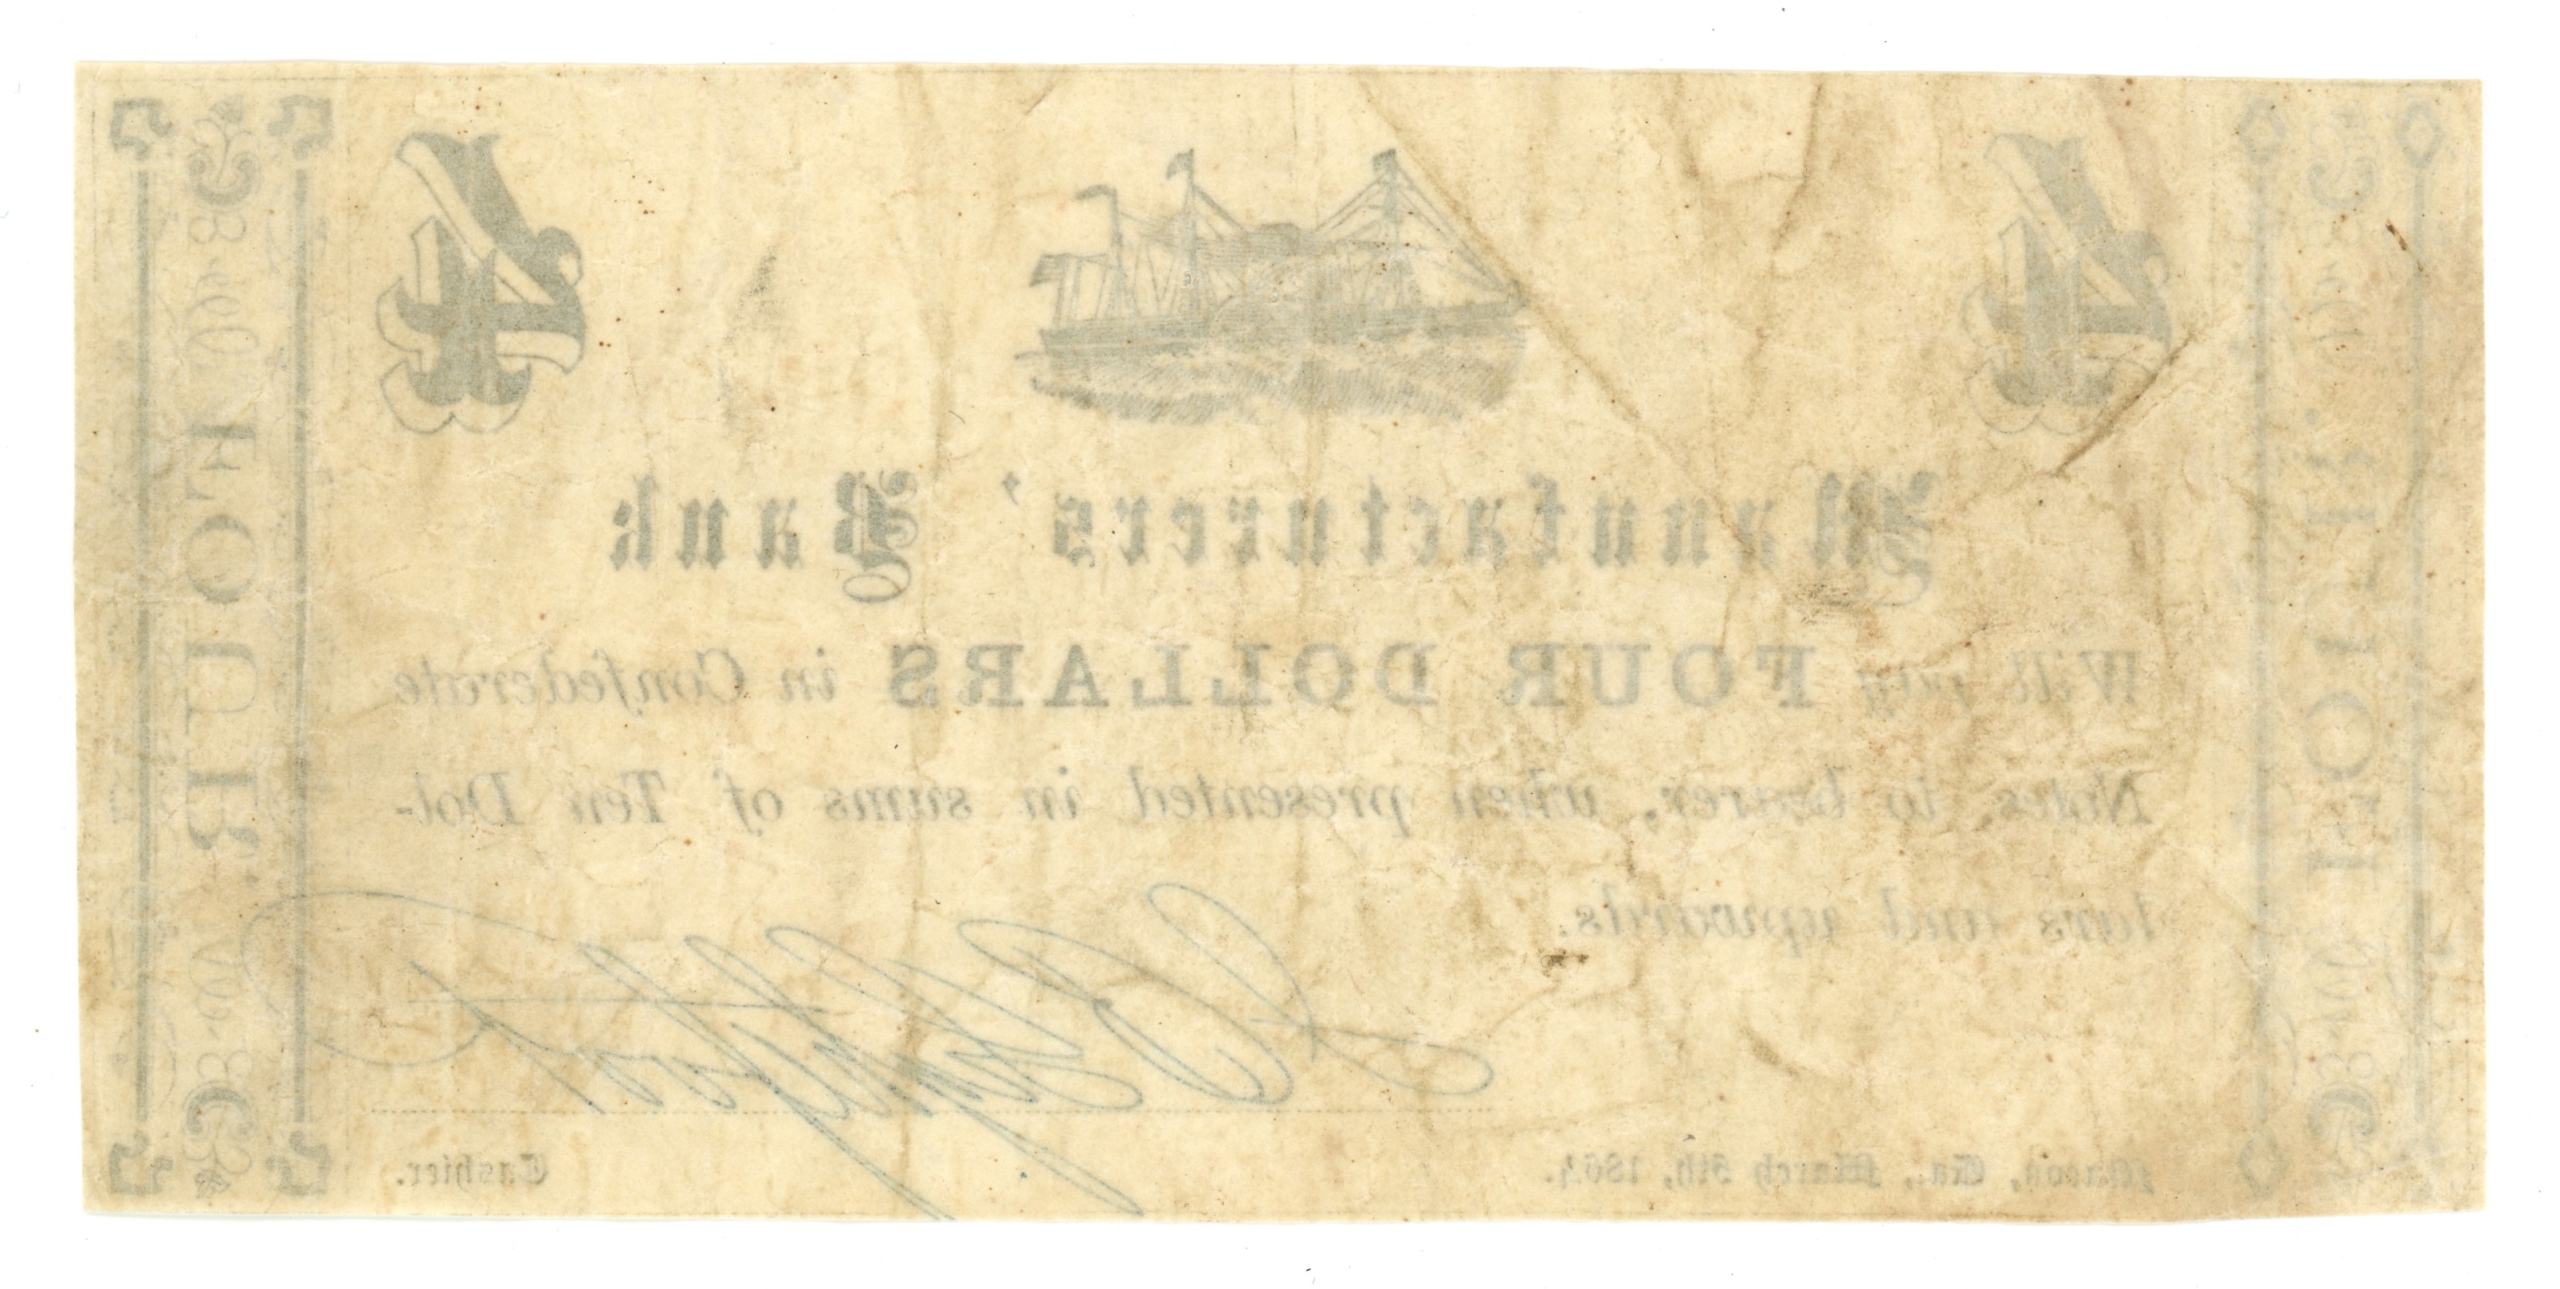 4
4
FOUR.
FOUR.
Manufacturers' Bank
Will pay FOUR DOLLARS in Confederate
Notes, to bearer, when presented in sums of Ten Dol-
lars and upwards.
Macon, Ga., March 5th, 1864.
Cashier.